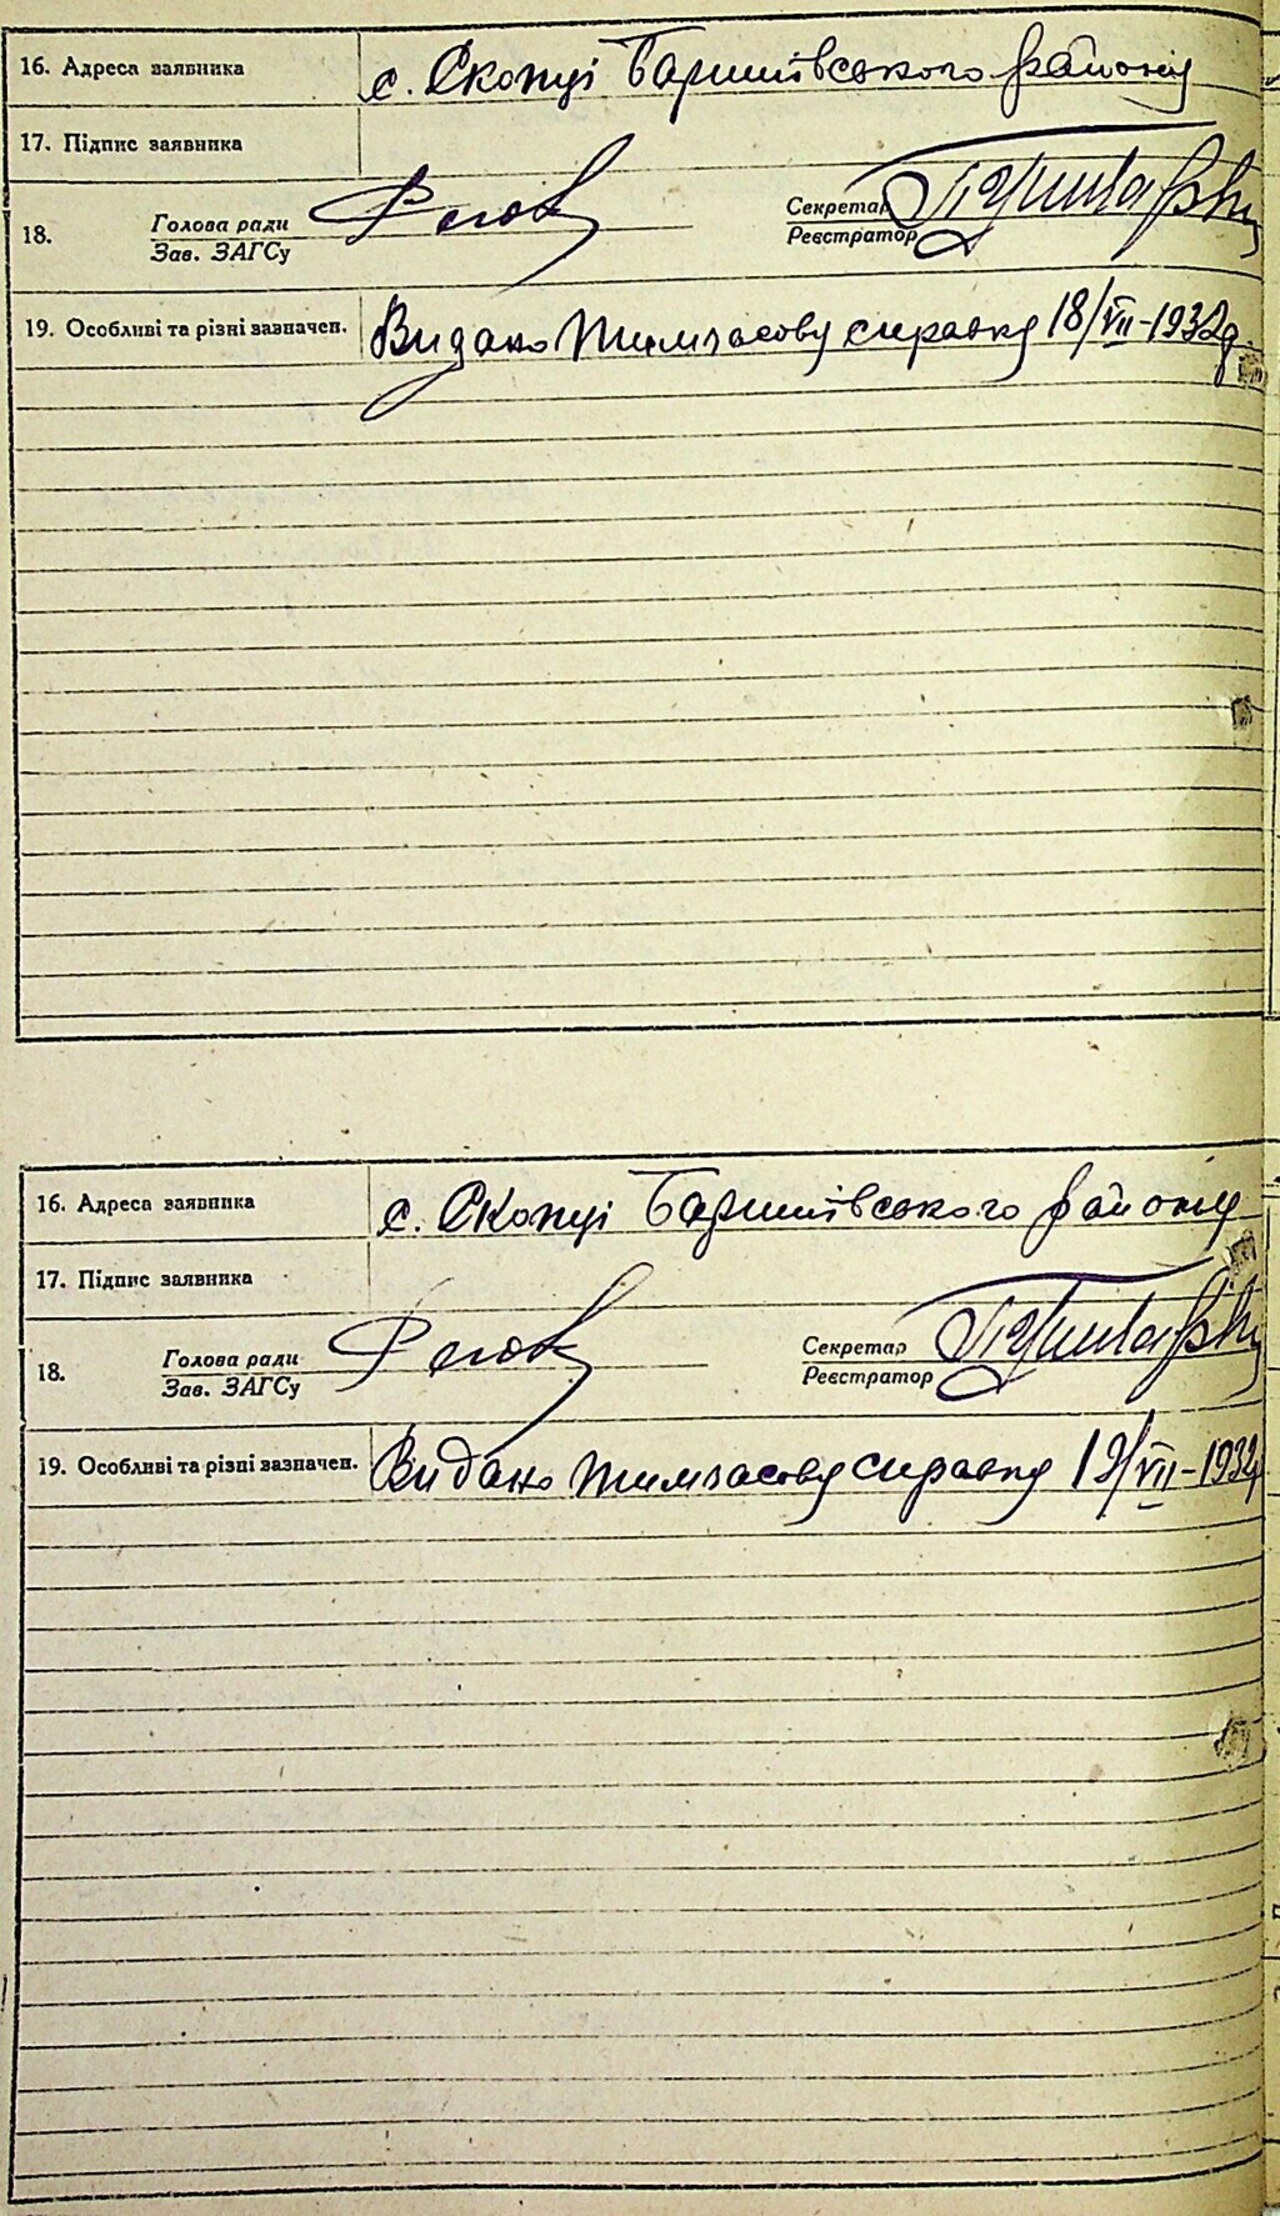 16. Адреса заявника с. Скопці Баришівського району
17. Підпис заявника
18. Голова ради Секретар
Зав. ЗАГСу Реєстратор
19. Особливі та різні зазначен. Видано тимчасову справку 18/VII-1932р.
16. Адреса заявника с. Скопці Баришівського району
17. Підпис заявника
18. Голова ради Секретар
Зав. ЗАГСу Реєстратор
19. Особливі та різні зазначен. Видано тимчасову справку 19/VII-1932р